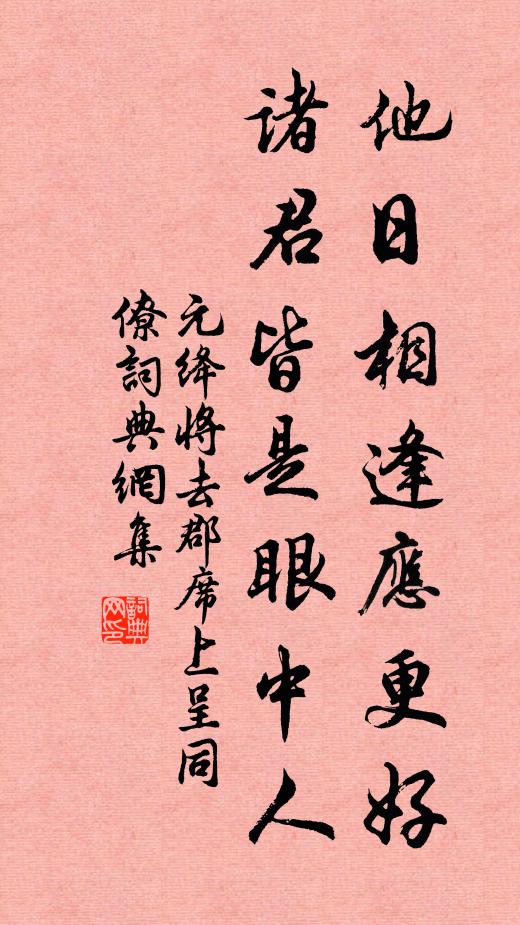 他日相逢應更好
諸君皆是眼中人
元絳將去郡席上呈同
僚詞典網集
詞典
网印